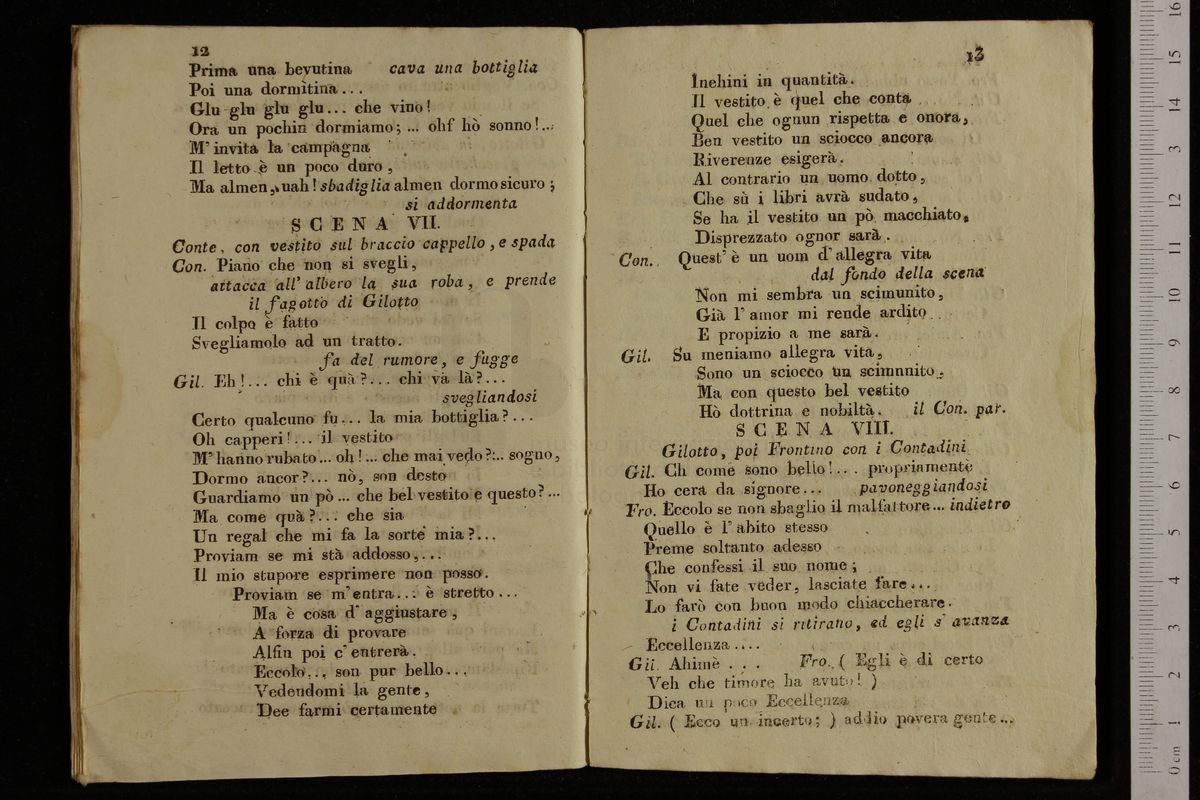 12
Prima una bevutina cava una bottiglia
Poi una dormitina...
Glu glu glu glu... che vino!
Ora un pochin dormiamo; ... ohf hò sonno!...
M' invita la campagna
Il letto è un poco duro,
Ma almen, uah! sbadiglia almen dormo sicuro;
si addormenta
SCENA VII.
Conte, con vestito sul braccio cappello, e spada
Con. Piano che non si svegli,
attacca all' albero la sua roba, e prende
il fagotto di Gilotto
Il colpo è fatto
Svegliamolo ad un tratto.
fa del rumore, e fugge
Gil. Eh!... chi è quà?... chi và là?...
svegliandosi
Certo qualcuno fu... la mia bottiglia?...
Oh capperi!... il vestito
M' hanno rubato... oh!... che mai vedo?... sogno,
Dormo ancor?... nò, son desto
Guardiamo un pò... che bel vestito e questo?...
Ma come quà?... che sia
Un regal che mi fa la sorte mia?...
Proviam se mi stà addosso,...
Il mio stupore esprimere non posso.
Proviam se m' entra... è stretto...
Ma è cosa d' aggiustare,
A forza di provare
Alfin poi c' entrerà.
Eccolo... son pur bello...
Vedendomi la gente,
Dee farmi certamente
13
Inehini in quantità.
Il vestito è quel che conta
Quel che ognun rispetta e onora,
Ben vestito un sciocco ancora
Riverenze esigerà.
Al contrario un uomo dotto,
Che sù i libri avrà sudato,
Se ha il vestito un pò macchiato,
Disprezzato ognor sarà.
Con. Quest' è un uom d' allegra vita
dal fondo della scena
Non mi sembra un scimunito,
Già l' amor mi rende ardito
E propizio a me sarà.
Gil. Su meniamo allegra vita,
Sono un sciocco un scimunito,
Ma con questo bel vestito
Hò dottrina e nobiltà. il Con. par.
SCENA VIII.
Gilotto, poi Frontino con i Contadini
Gil. Ch come sono bello!... propriamente
Ho cera da signore... pavoneggiandosi
Fro. Eccolo se non sbaglio il malfattore... indietro
Quello è l' abito stesso
Preme soltanto adesso
Che confessi il suo nome;
Non vi fate veder, lasciate fare...
Lo farò con buon modo chiaccherare.
i Contadini si ritirano, ed egli s' avanza
Eccellenza....
Gil. Ahimè . . . Fro. ( Egli è di certo
Veh che timore ha avuto! )
Dica un poco Eccellenza
Gil. ( Ecco un incerto; ) addio povera gente...
museo